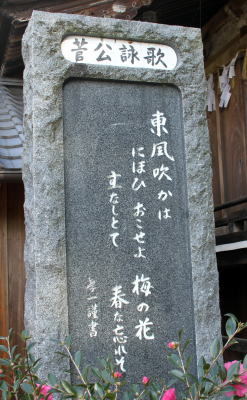 菅公詠歌
東風吹かは
にほひおこせよ 梅の花
主なしとて
春な忘れそ